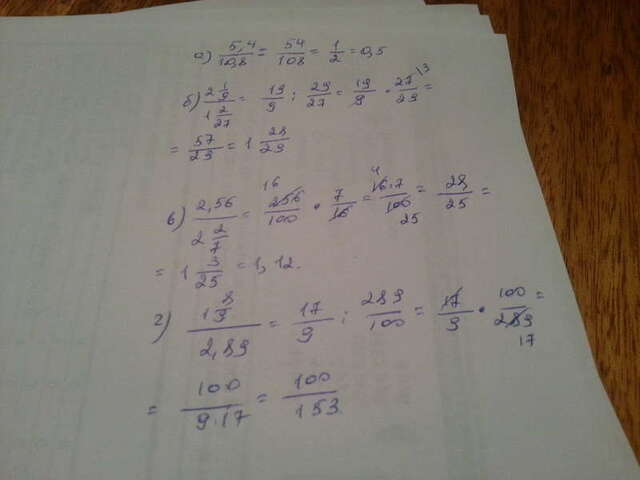 а) 5,4/10,8 = 54/108 = 1/2 = 0,5
б) 2 1/9 / 1 2/27 = 19/9 : 29/27 = 19/9 · 27/29 \3 =
= 57/29 = 1 28/29
в) 2,56 / 2 2/7 = 256/100 16 · 7/16 = 16·7/100 4 25 = 28/25 =
= 1 3/25 = 1,12.
г) 1 8/9 / 2,89 = 17/9 : 289/100 = 17/9 · 100/289 17 =
= 100/9·17 = 100/153